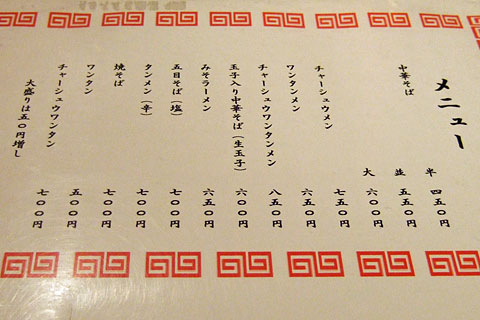 メニュー
中華そば 半 四五〇円
並 五五〇円
大 六〇〇円
チャーシュウメン 七五〇円
ワンタンメン 六五〇円
チャーシュウワンタンメン 八五〇円
玉子入り中華そば（生玉子） 六〇〇円
みそラーメン 六五〇円
五目そば（塩） 七〇〇円
タンメン（辛） 七〇〇円
焼そば 七〇〇円
ワンタン 五〇〇円
チャーシュウワンタン 七〇〇円
大盛りは五〇円増し